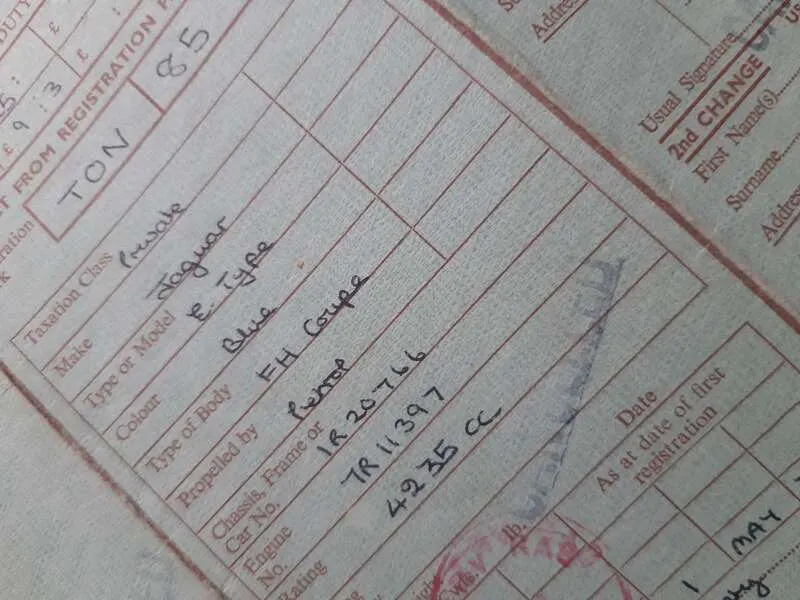 DUTY
£
£
£ 9 : 3
FROM REGISTRATION
TON 85
Taxation Class Private
Make Jaguar
Type or Model E. Type
Colour Blue
Type of Body FH Coupe
Propelled by Petrol
Chassis, Frame or
Car No. 1R 20766
Engine
No. 7R 11397
Rating 4235 CC
lb.
Cwts.
Date
As at date of first
registration
1 MAY
Address
Usual Signature
2nd CHANGE
First Name(s)
Surname
Address